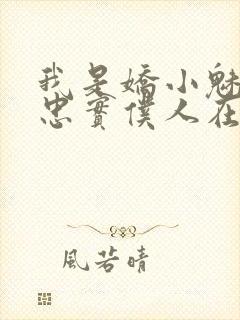 我是嬌小魅
忠實僕人在
風若晴